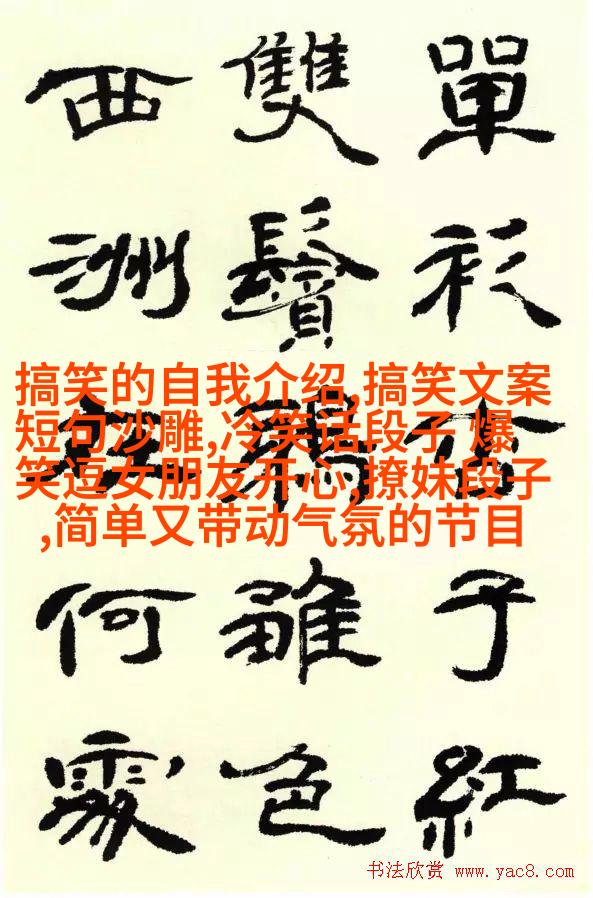 單衫杏子紅
雙鬢鴉雛色
西洲在何處
搞笑的自我介绍,搞笑文案
短句沙雕,冷笑话段子 爆
笑逗女朋友开心,撩妹段子
,简单又带动气氛的节目
书法欣赏 www.yac8.com